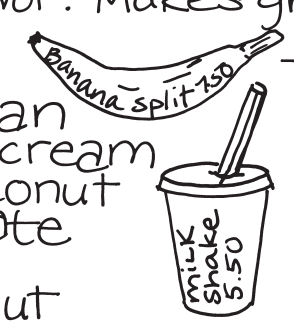 Makes
Banana split 7.50
an
cream
onut
ut
milk
shake
5.50